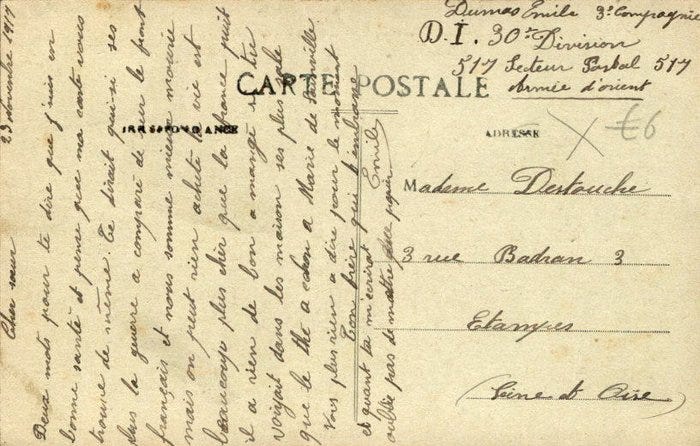 Dumas Emile 3e Compagnie
D.I. 30e Division
517 Secteur Postal 517
Armée d'orient
CARTE POSTALE
CORRESPONDANCE
ADRESSE
€6
Madame Destouche
3 rue Badran 3
Etampes
(Seine et Oise
23 novembre 1917
Cher sœur
Deux mots pour te dire que j'suis en
bonne santé et pense que ma carte vous
trouve de même. Te dirait qui si ses
plus la guerre a comparé de sur le front
français et nous somme mieux mourie
mais on peut rien acheté la vie est
beaucoup plus cher que la france puit
il a rien de bon a mangé
voyait dans les maison ses plus sale
que le thé a cochon a Marie de
Vois plus rien a dire pour le moment
Ton frère qui t'embrasse
Emile
et quant ta m'écrirat
oublie pas de mettre